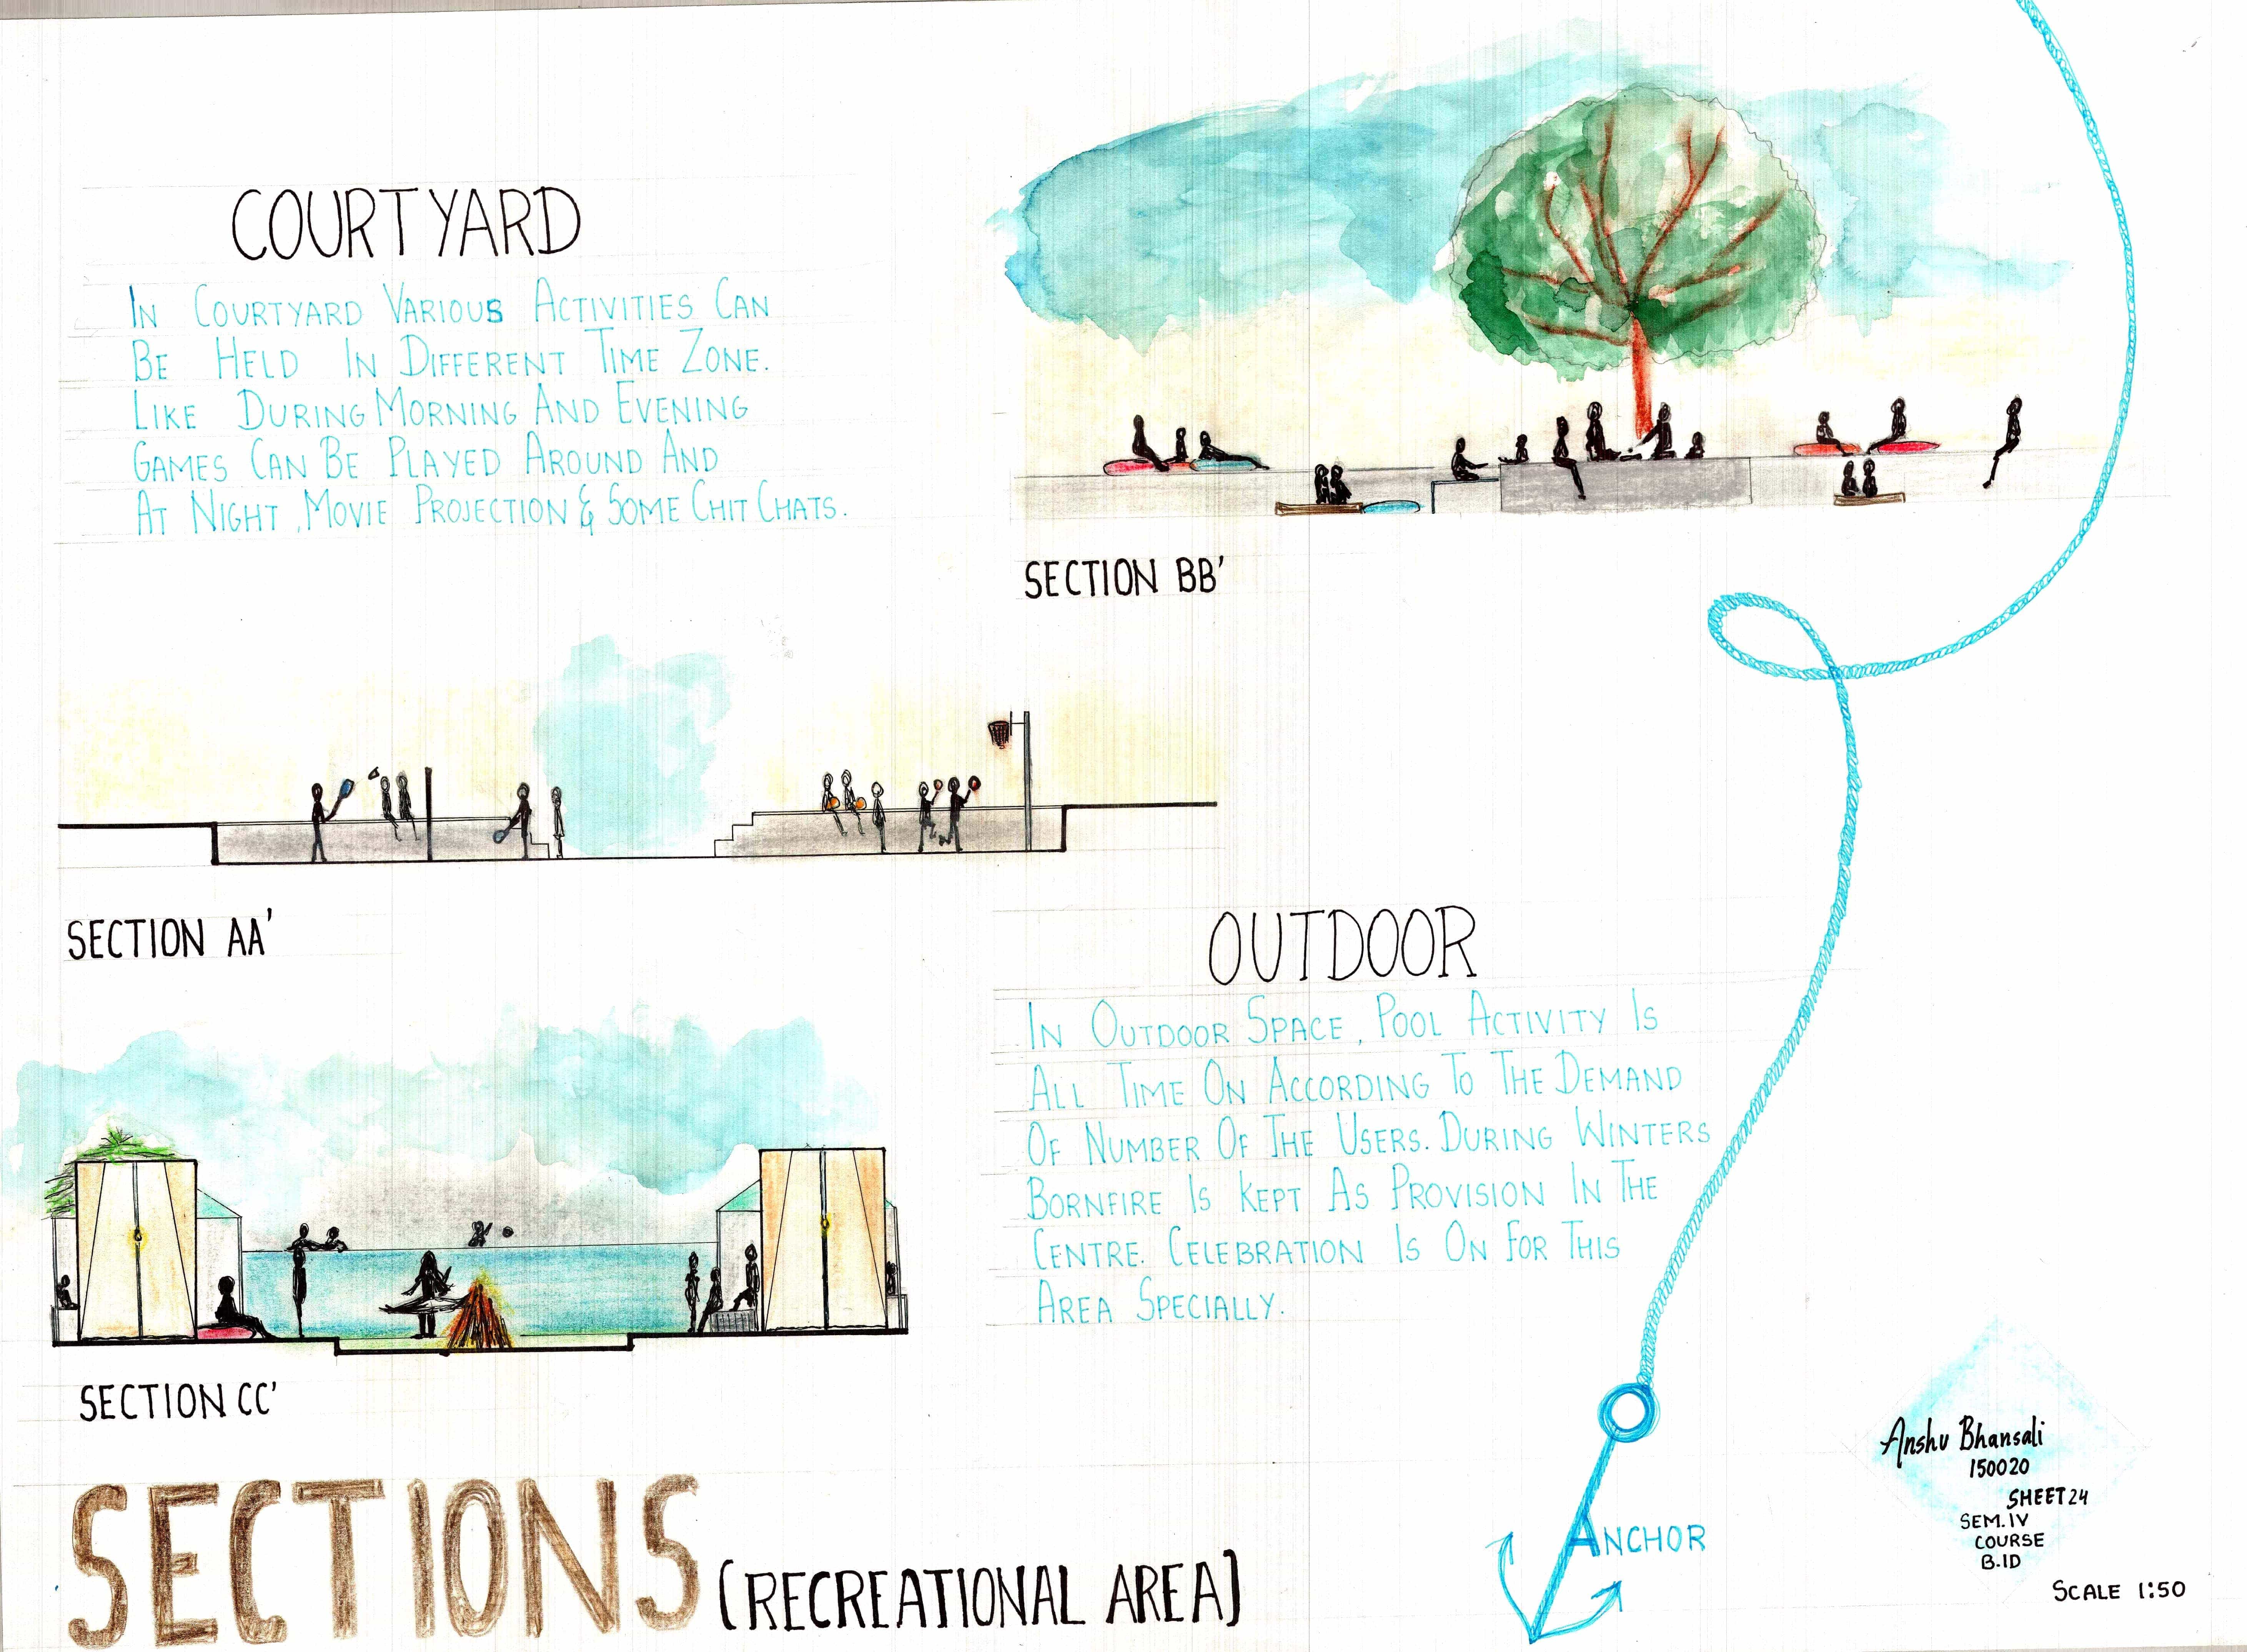 COURTYARD
IN COURTYARD VARIOUS ACTIVITIES CAN
BE HELD IN DIFFERENT TIME ZONE.
LIKE DURING MORNING AND EVENING
GAMES CAN BE PLAYED AROUND AND
AT NIGHT, MOVIE PROJECTION & SOME CHIT CHATS.
SECTION BB'
SECTION AA'
OUTDOOR
IN OUTDOOR SPACE, POOL ACTIVITY IS
ALL TIME ON ACCORDING TO THE DEMAND
OF NUMBER OF THE USERS. DURING WINTERS
BORNFIRE IS KEPT AS PROVISION IN THE
CENTRE. CELEBRATION IS ON FOR THIS
AREA SPECIALLY.
SECTION CC'
SECTIONS (RECREATIONAL AREA)
ANCHOR
Anshu Bhansali
150020
SHEET 24
SEM. IV
COURSE
B.ID
SCALE 1:50